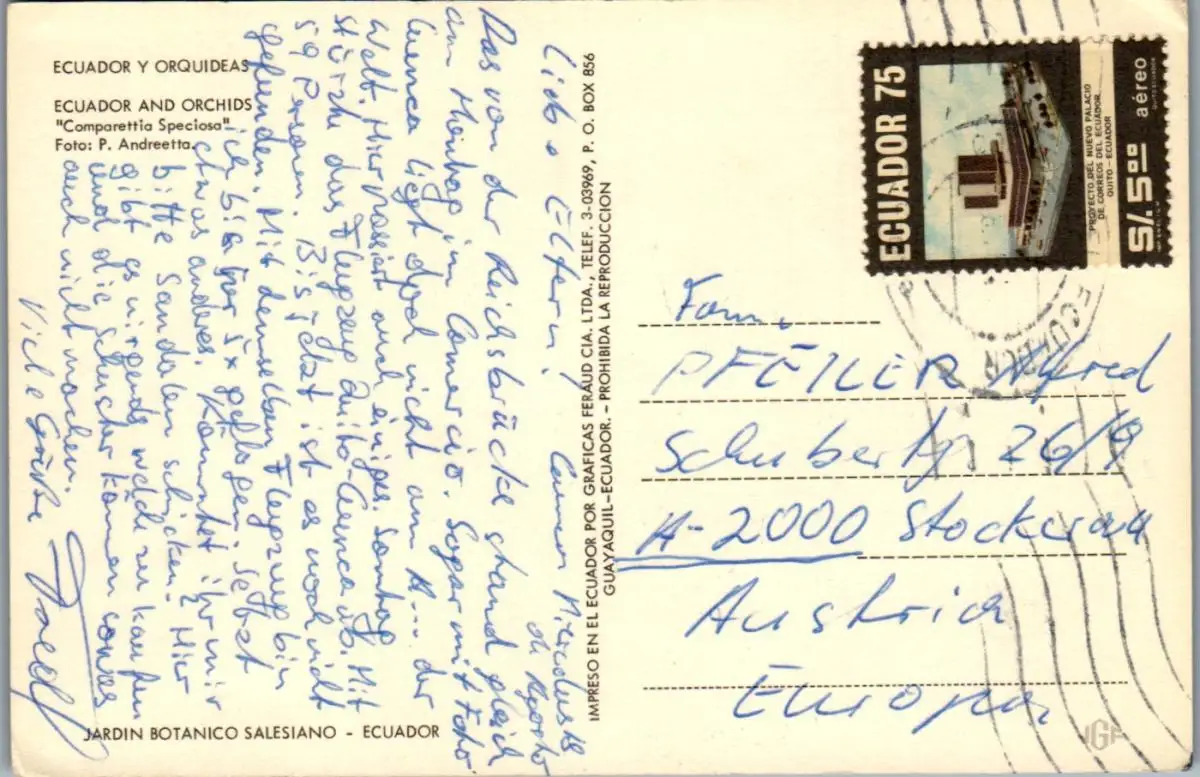 ECUADOR Y ORQUIDEAS
ECUADOR AND ORCHIDS
"Comparettia Speciosa"
Foto: P. Andreetta.
Liebe Eltern! Cuenca Miercoles 18
de Agosto
Das von der Reichsbrücke stand gleich
am Montag im Comercio. Sogar mit Foto
Cuenca liegt doch nicht am A... der
Welt. Hier passiert auch einiges. Sonntag
stürzte das Flugzeug Quito-Cuenca ab. Mit
59 Personen. Bis jetzt ist es noch nicht
gefunden. Mit demselben Flugzeug bin
ich bisher 5x geflogen. Setzt
etwas anderes. Könntet ihr mir
bitte Sandalen schicken. Hier
gibt es nirgends welche zu kaufen
und die Schuster können sowas
auch nicht machen.
Viele Grüße
JARDIN BOTANICO SALESIANO - ECUADOR
IMPRESO EN EL ECUADOR POR GRAFICAS FERAUD CIA. LTDA., TELEF. 3-03969, P. O. BOX 856
GUAYAQUIL-ECUADOR. - PROHIBIDA LA REPRODUCCION
ECUADOR 75
PROYECTO DEL NUEVO PALACIO
DE CORREOS DEL ECUADOR
QUITO-ECUADOR
S/. 5.00 aéreo
ECUADOR
Fam.
PFEILER Alfred
Schubertg 26/9
A-2000 Stockerau
Austria
Europa
IGF